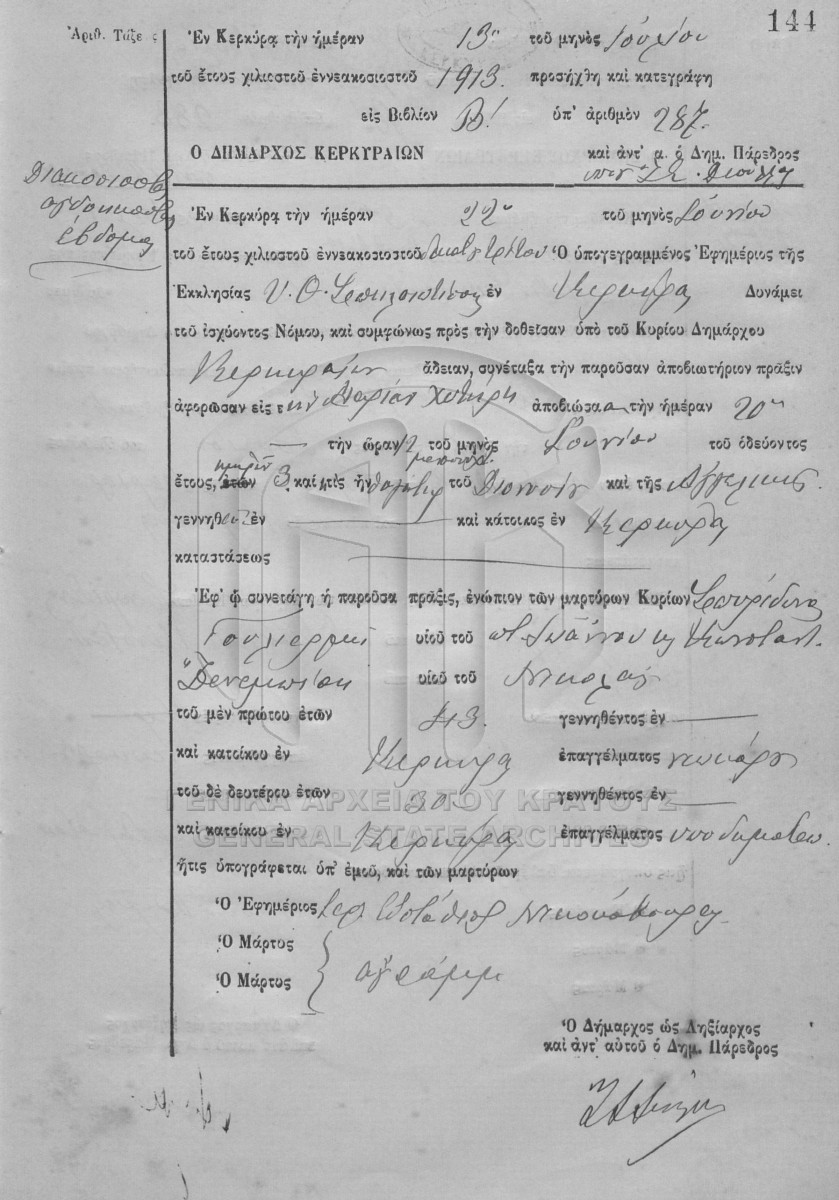 144
Ἀριθ. Τάξεως
Ἐν Κερκύρᾳ τὴν ἡμέραν 13ην τοῦ μηνὸς Ἰουλίου
τοῦ ἔτους χιλιοστοῦ ἐννεακοσιοστοῦ 1913. προσήχθη καὶ κατεγράφη
εἰς Βιβλίον Β' ὑπ' ἀριθμὸν 287.
Ο ΔΗΜΑΡΧΟΣ ΚΕΡΚΥΡΑΙΩΝ καὶ ἀντ' α. ὁ Δημ. Πάρεδρος
Διακοσιοστὸν
ὀγδοηκοστὸν
ἕβδομον
Ἐν Κερκύρᾳ τὴν ἡμέραν 22αν τοῦ μηνὸς Ἰουνίου
τοῦ ἔτους χιλιοστοῦ ἐννεακοσιοστοῦ δεκάτου τρίτου Ὁ ὑπογεγραμμένος Ἐφημέριος τῆς
Ἐκκλησίας Υ. Θ. ἐν Κερκύρᾳ Δυνάμει
τοῦ ἰσχύοντος Νόμου, καὶ συμφώνως πρὸς τὴν δοθεῖσαν ὑπὸ τοῦ Κυρίου Δημάρχου
Κερκυραίων ἄδειαν, συνέταξα τὴν παροῦσαν ἀποβιωτήριον πρᾶξιν
ἀφορῶσαν εἰς τὴν Μαρίαν Χυτήρη ἀποβιώσασαν τὴν ἡμέραν 20ην
— τὴν ὥραν 12 μεσονύχ. τοῦ μηνὸς Ἰουνίου τοῦ ὁδεύοντος
ἔτους, ἐτῶν ἡμερῶν 3 καὶ ἥτις ἦν θυγάτηρ τοῦ Διονυσίου καὶ τῆς Ἀγγελικῆς.
γεννηθεῖσα ἐν — καὶ κάτοικος ἐν Κερκύρᾳ
καταστάσεως —
Ἐφ' ᾧ συνετάγη ἡ παροῦσα πρᾶξις, ἐνώπιον τῶν μαρτύρων Κυρίων Σπυρίδωνα
υἱοῦ τοῦ π. Ἰωάννου κ Κωνσταντ.
υἱοῦ τοῦ Νικολάου
τοῦ μὲν πρώτου ἐτῶν 43. γεννηθέντος ἐν —
καὶ κατοίκου ἐν Κερκύρᾳ ἐπαγγέλματος
τοῦ δὲ δευτέρου ἐτῶν 30 γεννηθέντος ἐν —
ΓΕΝΙΚΑ ΑΡΧΕΙΑ ΤΟΥ ΚΡΑΤΟΥΣ
GENERAL STATE ARCHIVES
καὶ κατοίκου ἐν Κερκύρᾳ ἐπαγγέλματος ὑποδηματοπ.
ἥτις ὑπογράφεται ὑπ' ἐμοῦ, καὶ τῶν μαρτύρων
Ὁ Ἐφημέριος Ἱερ.
Ὁ Μάρτυς
Ὁ Μάρτυς
ἀγράμμ.
Ὁ Δήμαρχος ὡς Ληξίαρχος
καὶ ἀντ' αὐτοῦ ὁ Δημ. Πάρεδρος